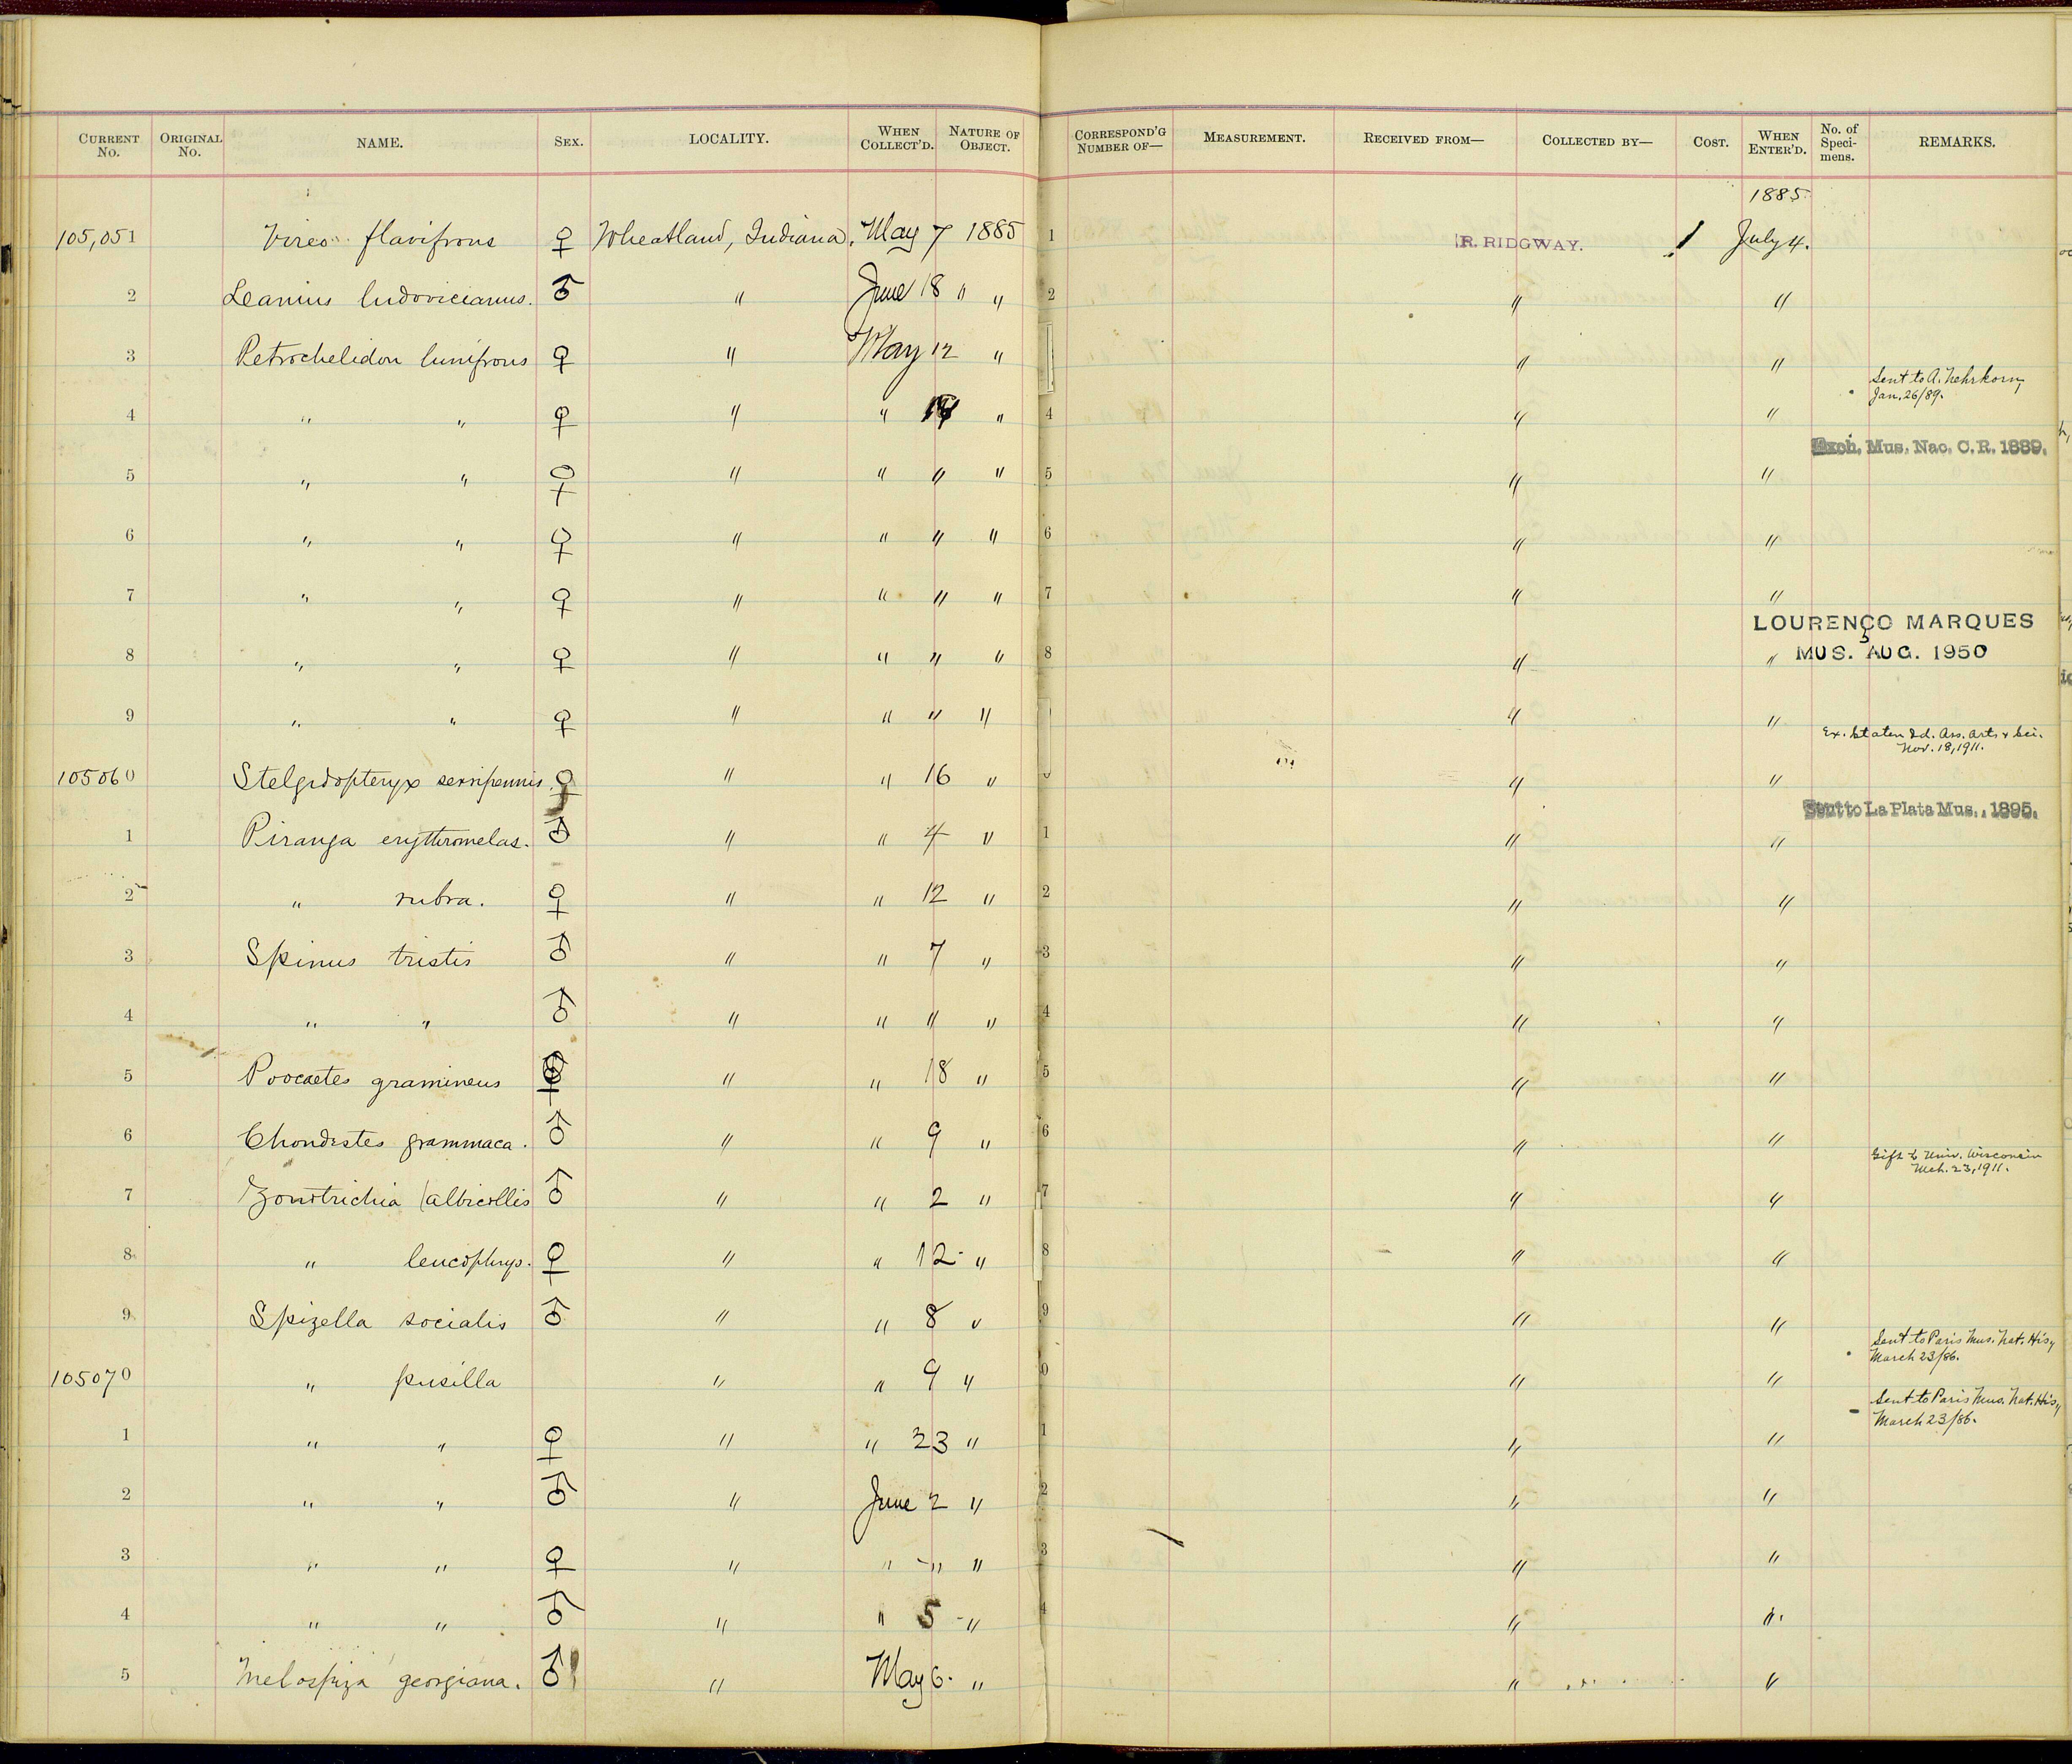 CURRENT No. ORIGINAL No. NAME. SEX. LOCALITY. WHEN COLLECT'D. NATURE OF OBJECT. CORRESPOND'G NUMBER OF— MEASUREMENT. RECEIVED FROM— COLLECTED BY— COST. WHEN ENTER'D. No. of Speci-mens. REMARKS.
1885
105,051 Vireo flavifrons ♀ Wheatland, Indiana, May 7 1885 1 R. RIDGWAY. 1 July 4.
2 Leanius ludovicianus. ♂ " June 18 " " 2 " "
3 Petrochelidon lunifrons ♀ " May 12 " " "
Sent to A. Nehrkorn, Jan. 26/89.
4 " " ♀ " " " 4 " "
Exch. Mus. Nac. C. R. 1889.
5 " " ♀ " " " " 5 " "
6 " " ♀ " " " " 6 " "
7 " " ♀ " " " " 7 " "
LOURENÇO MARQUES
8 " " ♀ " " " " 8 " " MUS. AUG. 1950
9 " " ♀ " " " " " "
Ex. Staten Id. Ass. Arts & Sci. Nov. 18, 1911.
105060 Stelgidopteryx serripennis. ♀ " " 16 " " "
Sent to La Plata Mus., 1895.
1 Piranga erythromelas. ♂ " " 4 " 1 " "
2 " rubra. ♀ " " 12 " 2 " "
3 Spinus tristis ♂ " " 7 " 3 " "
4 " " ♂ " " " " 4 " "
5 Poocaetes gramineus ♀ " " 18 " 5 " "
6 Chondestes grammaca. ♂ " " 9 " 6 " "
Gift to Univ. Wisconsin Mch. 23, 1911.
7 Zonotrichia albicollis ♂ " " 2 " 7 " "
8 " leucophrys. ♀ " " 12 " 8 " "
9 Spizella socialis ♂ " " 8 " 9 " "
Sent to Paris Mus. Nat. Hisy March 23/86.
105070 " pusilla " " 9 " 0 " "
Sent to Paris Mus. Nat. Hisy March 23/86.
1 " " ♀ " " 23 " 1 " "
2 " " ♂ " June 2 " 2 " "
3 " " ♀ " " " " 3 " "
4 " " ♂ " " 5 " 4 " "
5 Melospiza georgiana. ♂ " May 6. " " "